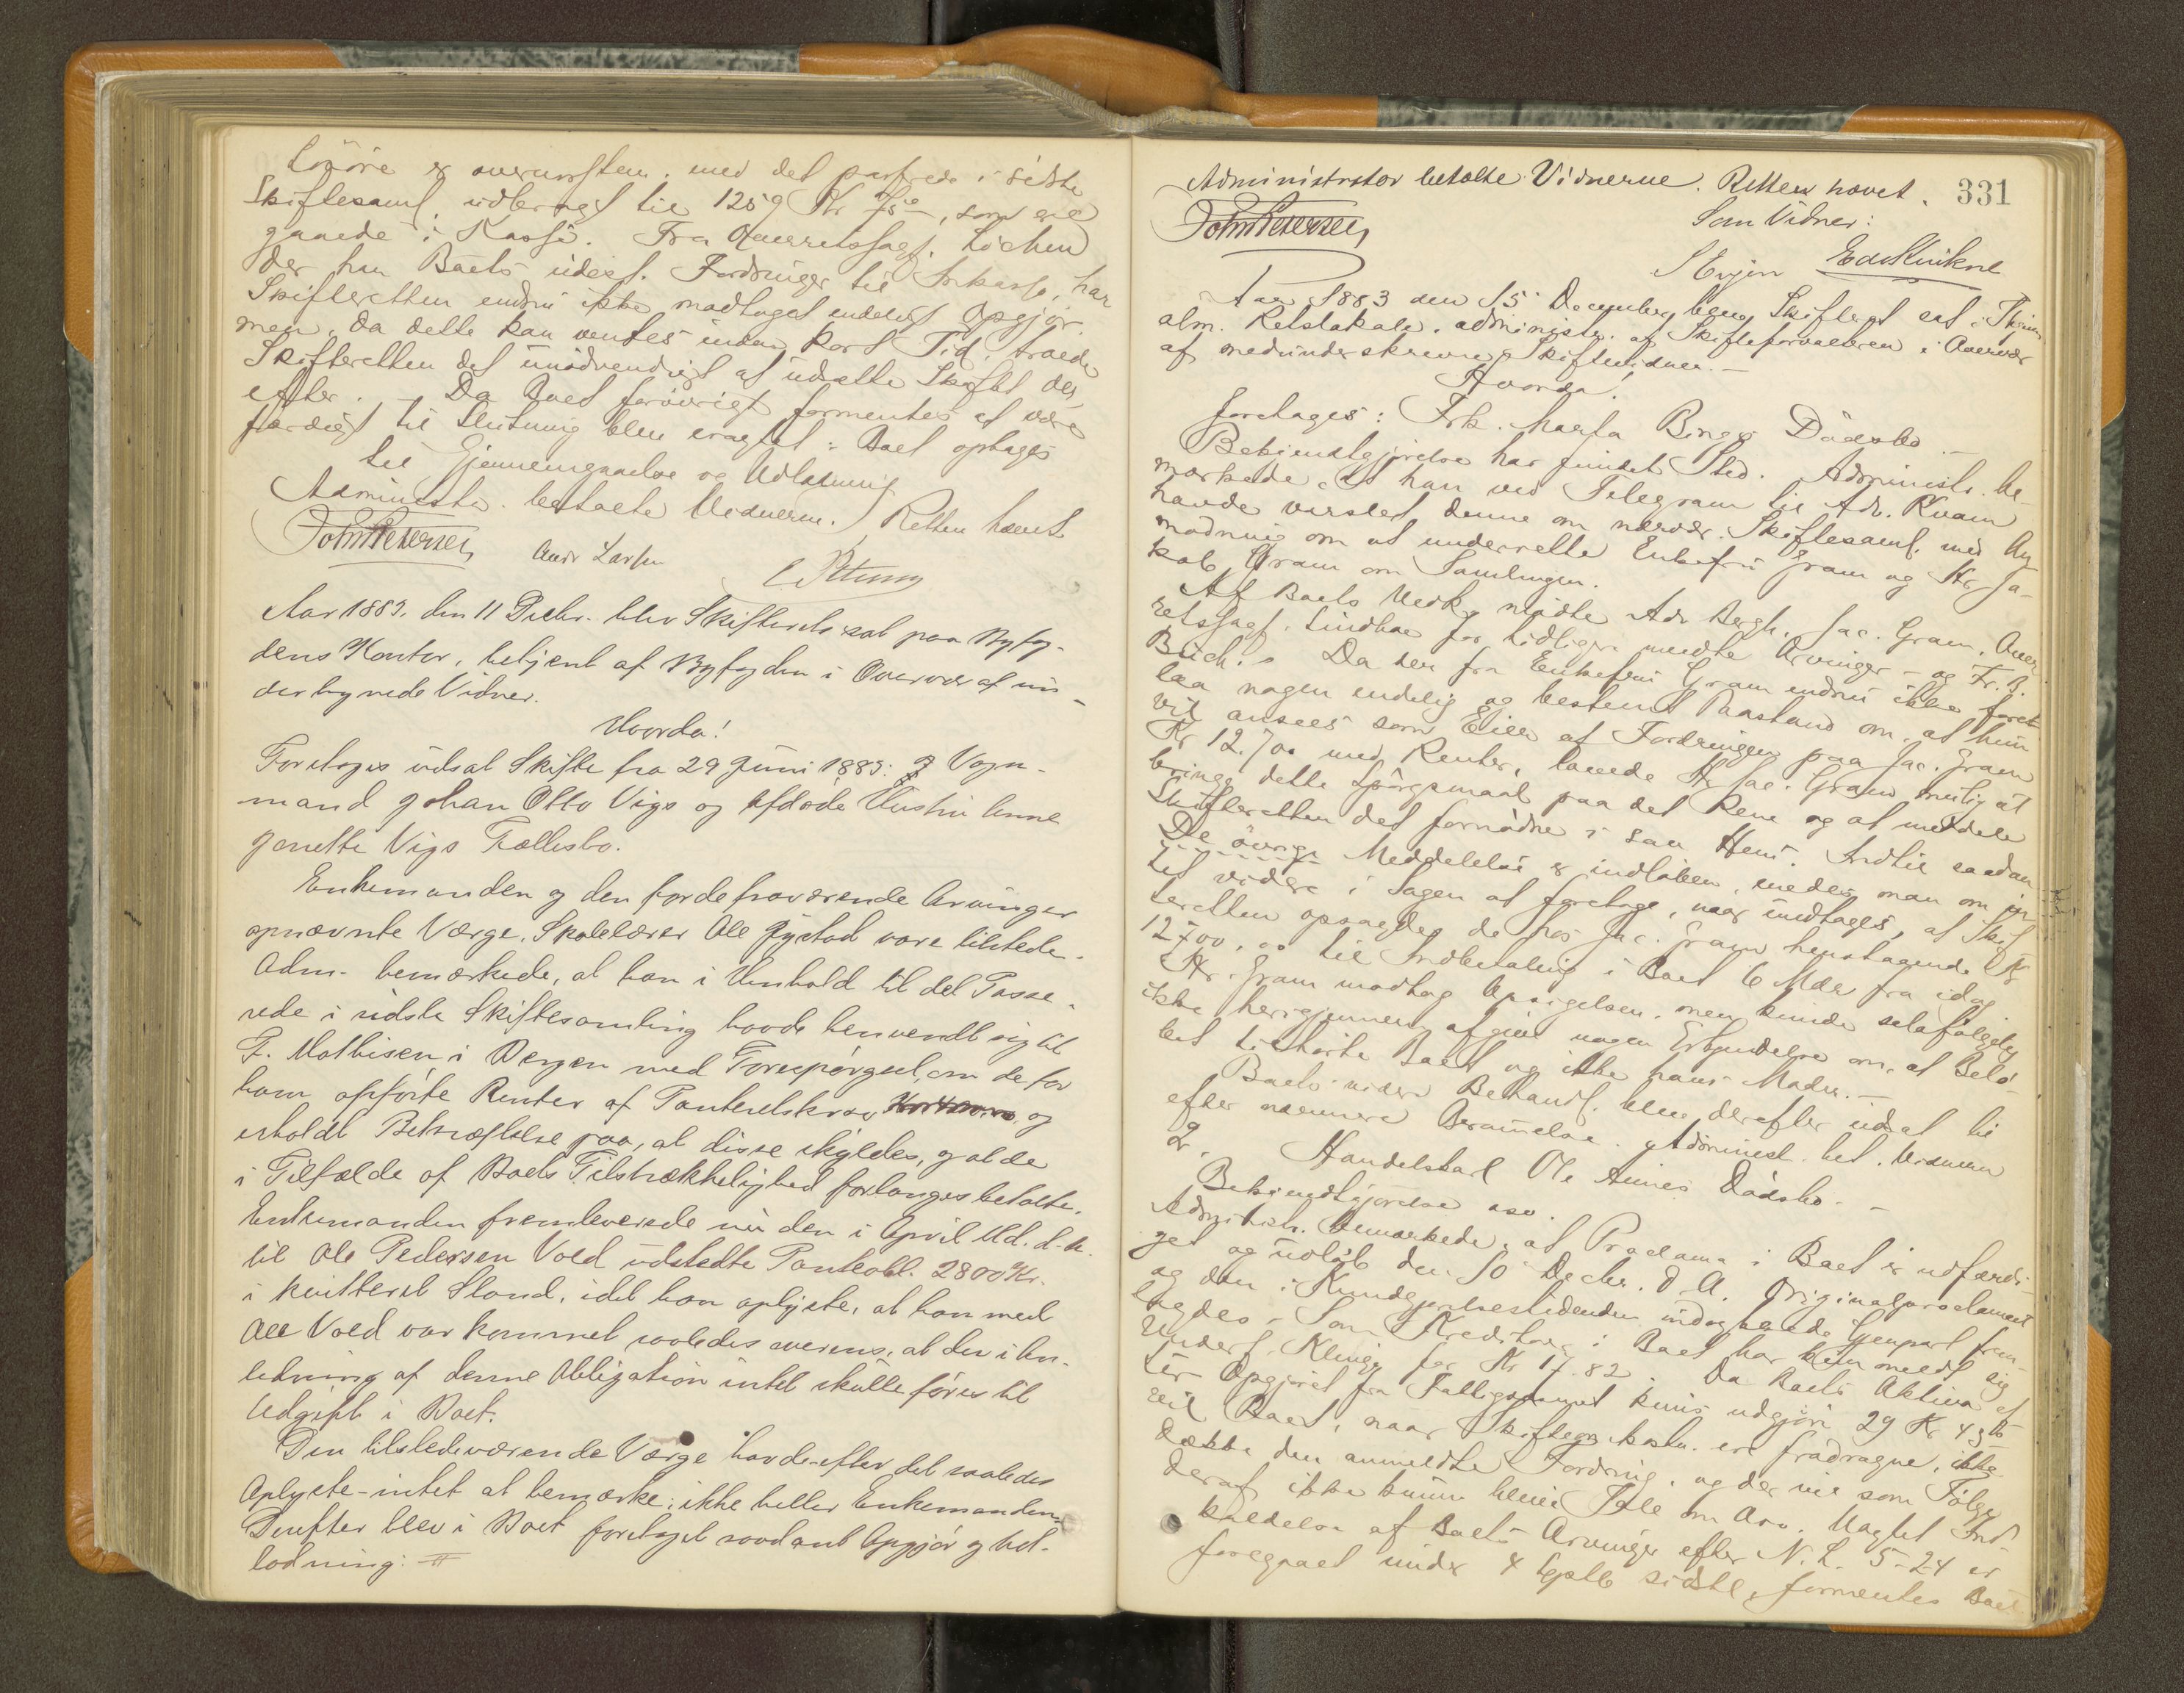 Løsøre er overensstem. med det passerede i sidste
Skiftesaml. udbragt til 1259 Kr 75 Ø, som ere
gaaede i Kassa. Fra Overretssagf. Lochen
der har Boets udest. Fordringer til Inkasso, har
Skifteretten endnu ikke modtaget endeligt Opgjør.
men, da dette kan ventes inden kort Tid, troede
Skifteretten det unødvendigt at udsætte Skiftet der-
efter. – Da Boet forøvrigt formentes at være
færdigt til Slutning blev eragtet: Boet optages
til Gjennemgaaelse og Udlodning
Administr. betalte Vidnerne. Retten hævet
John Petersen Andr Larsen
Aar 1883. den 11 Decbr. blev Skifteret sat paa Byfog-
dens Kontor, betjent af Byfogden i Overvær af un-
dertegnede Vidner.
Hvorda!
Foretages udsat Skifte fra 29 Juni 1883: i Vogn-
mand Johan Otto Vigs og afdøde Hustru Anne
Janette Vigs Fællesbo.
Enkemanden og den for de fraværende Arvinger
opnævnte Værge, Skolelærer Ole Gystad vare tilstede.
Adm. bemærkede, at han i Henhold til det Passe-
rede i sidste Skiftesamling havde henvendt sig til
F. Mathisen i Bergen med Forespørgsel, om de for
ham opførte Renter af Panteretskrav og
erholdt Bekræftelse paa, at disse skyldes, og at de
i Tilfælde af Boets Tilstrækkelighed forlanges betalte.
Enkemanden fremleverede nu den i April Md. d. A.
til Ole Pedersen Vold udstedte Panteobl. 2800 Kr.
i kvitteret Stand, idet han oplyste, at han med
Ole Vold var kommet saaledes overens, at der i An-
ledning af denne Obligation intet skulle føres til
Udgift i Boet.
Den tilstedeværende Værge havde efter det saaledes
Oplyste – intet at bemærke; ikke heller Enkemanden.
Derefter blev i Boet foretaget saadant Opgjør og Ud-
lodning:
331
Administrator betalte Vidnerne. Retten hævet.
John Petersen Som Vidner:
Aar 1883 den 15 December blev Skifteret sat i Thjems
alm. Retslokale. administr. af Skifteforvalteren i Overvær
af medunderskrevne Skiftevidner. –
Hvorda!
foretages: Frk. Marfa Bings Dødsbo. –
Bekjendtgjørelse har fundet Sted. Administr. be-
mærkede, at han ved Telegram til Adv. Kvam
havde varslet denne om nærvær. Skiftesaml. med An-
modning om at underrette Enkefru Gram og Hr Ja-
kob Gram om Samlingen.
Af Boets Vedk. mødte Adv Bergh, Jac. Gram, Over-
retssagf. Lindboe for tidligere mødte Arvinger – og Fr. B.
Buch. Da der fra Enkefru Gram endnu ikke fore-
laa nogen endelig og bestemt Paastand om, at hun
vil ansees som Eier af Fordringen paa Jac. Gram
Kr 12.700 med Renter, lovede Hr Jac. Gram snarlig at
bringe dette Spørgsmaal paa det Rene og at meddele
Skifteretten det fornødne i saa Hens. Indtil saadan
Meddelelse er indløben,
tet videre i Sagen at foretage, naar undtages, at Skif-
teretten opsagde de hos Jac. Gram henstaaende Kr
12700, 00 til Indbetaling i Boet 6 Mdr fra idag
Hr. Gram modtog Opsigelsen, men kunde selvfølgelig
ikke herigjennem afgive nogen Erkjendelse om, at Belø-
bet tilhørte Boet og ikke hans Moder. –
Boets videre Behandl. blev derefter udsat til
efter nærmere Berammelse. Administ. bet. Vidnerne
2. Handelskarl Ole Aunes Dødsbo. –
Bekjendtgjørelse osv.
Administr. bemærkede, at Proclama i Boet er udfærdi-
get og udløb den 10 Decbr. d. A. Originalproclamaet
og den i Kundgjørelsestidenden indtagne Gjenpart frem-
lagdes. – Som Kreditor i Boet har kun meldt sig
Underf. Klingg for Kr 17.82. Da Boets Aktiva ef-
ter Opgjøret fra Fattigvæsenet kuns udgjør 29 Kr 43 Ø
vil Boet, naar Skifteomkostn. ere fradragne, ikke
dække den anmeldte Fordring, og der vil som Følge
deraf ikke kunne blive Tale om Arv. Uagtet Ind-
kaldelse af Boets Arvinger efter N. L. 5-2-4 er
foregaaet under 4 Septb sidstl., formentes Boet